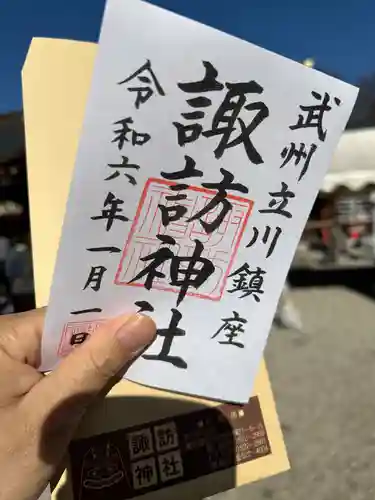 武州立川鎮座
諏訪神社
令和六年一月一日
諏訪
神社